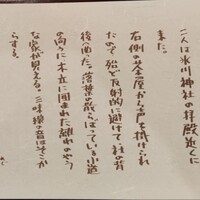 二人は氷川神社の拝殿近くに
来た。
右側の茶店から声を掛けられ
たので殆ど反射的に避けて社の背
後へ廻った。落葉の散らばっている小道
の向うに木立に囲まれた離れのやう
な家が見える。三味線の音はそこか
らする。